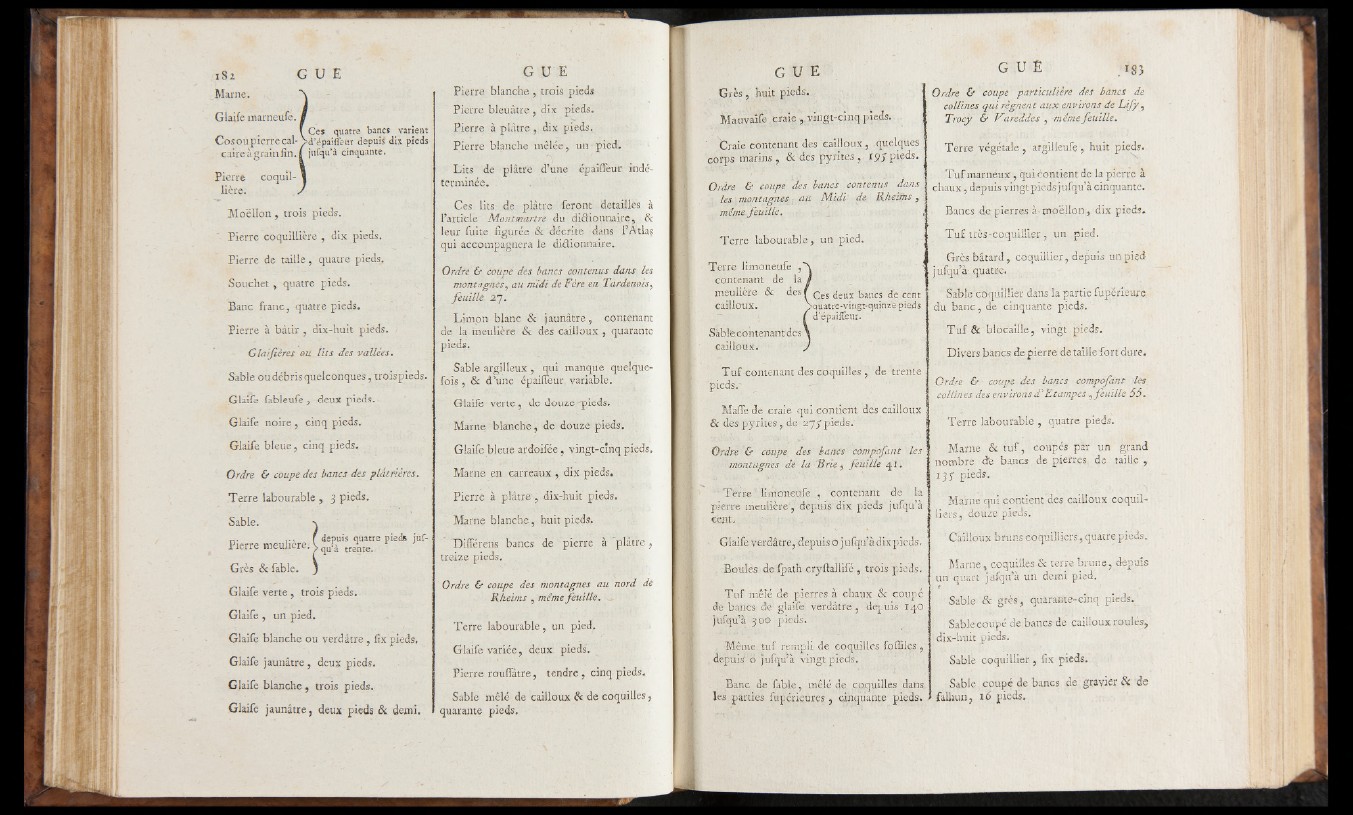 182 GUE
Marne.
Glaiſe marneuſe.
Cos ou pierre cal-
caire à grain fin.
Pierre coquil-
lière.
Ces quatre bancs varient
d'épaiſſeur depuis dix pieds
juſqu'à cinquante.
Moëllon, trois pieds.
Pierre coquillière, dix pieds.
Pierre de taille, quatre pieds.
Souchet, quatre pieds.
Banc franc, quatre pieds.
Pierre à bâtir, dix-huit pieds.
Glaiſières ou lits des vallées.
Sable ou débris quelconques, trois pieds.
Glaiſe ſableuſe, deux pieds.
Glaiſe noire, cinq pieds.
Glaiſe bleue, cinq pieds.
Ordre & coupe des bancs des plâtrières.
Terre labourable, 3 pieds.
Sable.
Pierre meulière.
Grès & ſable.
depuis quatre pieds juſ-
qu'à trente.
Glaiſe verte, trois pieds.
Glaiſe, un pied.
Glaiſe blanche ou verdâtre, ſix pieds.
Glaiſe jaunâtre, deux pieds.
Glaiſe blanche, trois pieds.
Glaiſe jaunâtre, deux pieds & demi.
GUE
Pierre blanche, trois pieds
Pierre bleuâtre, dix pieds.
Pierre à plâtre, dix pieds.
Pierre blanche mêlée, un pied.
Lits de plâtre d'une épaiſſeur indé-
terminée.
Ces lits de plâtre ſeront détaillés à
l'article Montmartre du dictionnaire, &
leur ſuite figurée & décrite dans l'Atlas
qui accompagnera le dictionnaire.
Ordre & coupe des bancs contenus dans les
montagnes, au midi de Fère en Tardenois,
feuille 27.
Limon blanc & jaunâtre, contenant
de la meulière & des cailloux, quarante
pieds.
Sable argilleux, qui manque quelque-
fois, & d'une épaiſſeur variable.
Glaiſe verte, de douze pieds.
Marne blanche, de douze pieds.
Glaiſe bleue ardoiſée, vingt-cinq pieds.
Marne en carreaux, dix pieds.
Pierre à plâtre, dix-huit pieds.
Marne blanche, huit pieds.
Différens bancs de pierre à plâtre,
treize pieds.
Ordre & coupe des montagnes au nord de
Rheims, même feuille.
Terre labourable, un pied.
Glaiſe variée, deux pieds.
Pierre rouſſâtre, tendre, cinq pieds.
Sable mêlé de cailloux & de coquilles,
quarante pieds.
GUE
Grès, huit pieds.
Mauvaiſe craie, vingt-cinq pieds.
Craie contenant des cailloux, quelques
corps marins, & des pyrites, 195 pieds.
Ordre & coupe des bancs contenus dans
les montagnes au Midi de Rheims,
même feuille.
Terre labourable, un pied.
Terre limoneuſe,
contenant de la
meulière & des
cailloux.
Sable contenant des
cailloux.
Ces deux bancs de cent
quatre-vingt-quinze pieds
d'épaiſſeur.
Tuf contenant des coquilles, de trente
pieds.
Maſſe de craie qui contient des cailloux
& des pyrites, de 275 pieds.
Ordre & coupe des bancs compoſant les
montagnes de la Brie, feuille 41.
Terre limoneuſe, contenant de la
pierre meulière, depuis dix pieds juſqu'à
cent.
Glaiſe verdâtre, depuis 0 juſqu'à dix pieds.
Boules de ſpath cryſtalliſé, trois pieds.
Tuf mêlé de pierres à chaux & coupé
de bancs de glaiſe verdâtre, depuis 140
juſqu'à 300 pieds.
Même tuf rempli de coquilles foſſiles,
depuis 0 juſqu'à vingt pieds.
Banc de ſable, mêlé de coquilles dans
les parties ſupérieures, cinquante pieds.
GUÉ 183
Ordre & coupe particulière des bancs de
collines qui règnent aux environs de Liſy,
Trocy & Vareddes, même feuille.
Terre végétale, argilleuſe, huit pieds.
Tuf marneux, qui contient de la pierre à
chaux, depuis vingt pieds juſqu'à cinquante.
Bancs de pierres à moëllon, dix pieds.
Tuf très-coquillier, un pied.
Grès bâtard, coquillier, depuis un pied
juſqu'à quatre.
Sable coquillier dans la partie ſupérieure
du banc, de cinquante pieds.
Tuf & blocaille, vingt pieds.
Divers bancs de pierre de taille fort dure.
Ordre & coupe des bancs compoſant les
collines des environs d'Etampes, feuille 55.
Terre labourable, quatre pieds.
Marne & tuf, coupés par un grand
nombre de bancs de pierres de taille,
135 pieds.
Marne qui contient des cailloux coquil-
liers, douze pieds.
Cailloux bruns coquilliers, quatre pieds.
Marne, coquilles & terre brune, depuis
un quart juſqu'à un demi pied.
Sable & grès, quarante-cinq pieds.
Sable coupé de bancs de cailloux roulés,
dix-huit pieds.
Sable coquillier, ſix pieds.
Sable coupé de bancs de gravier & de
falhun, 16 pieds.